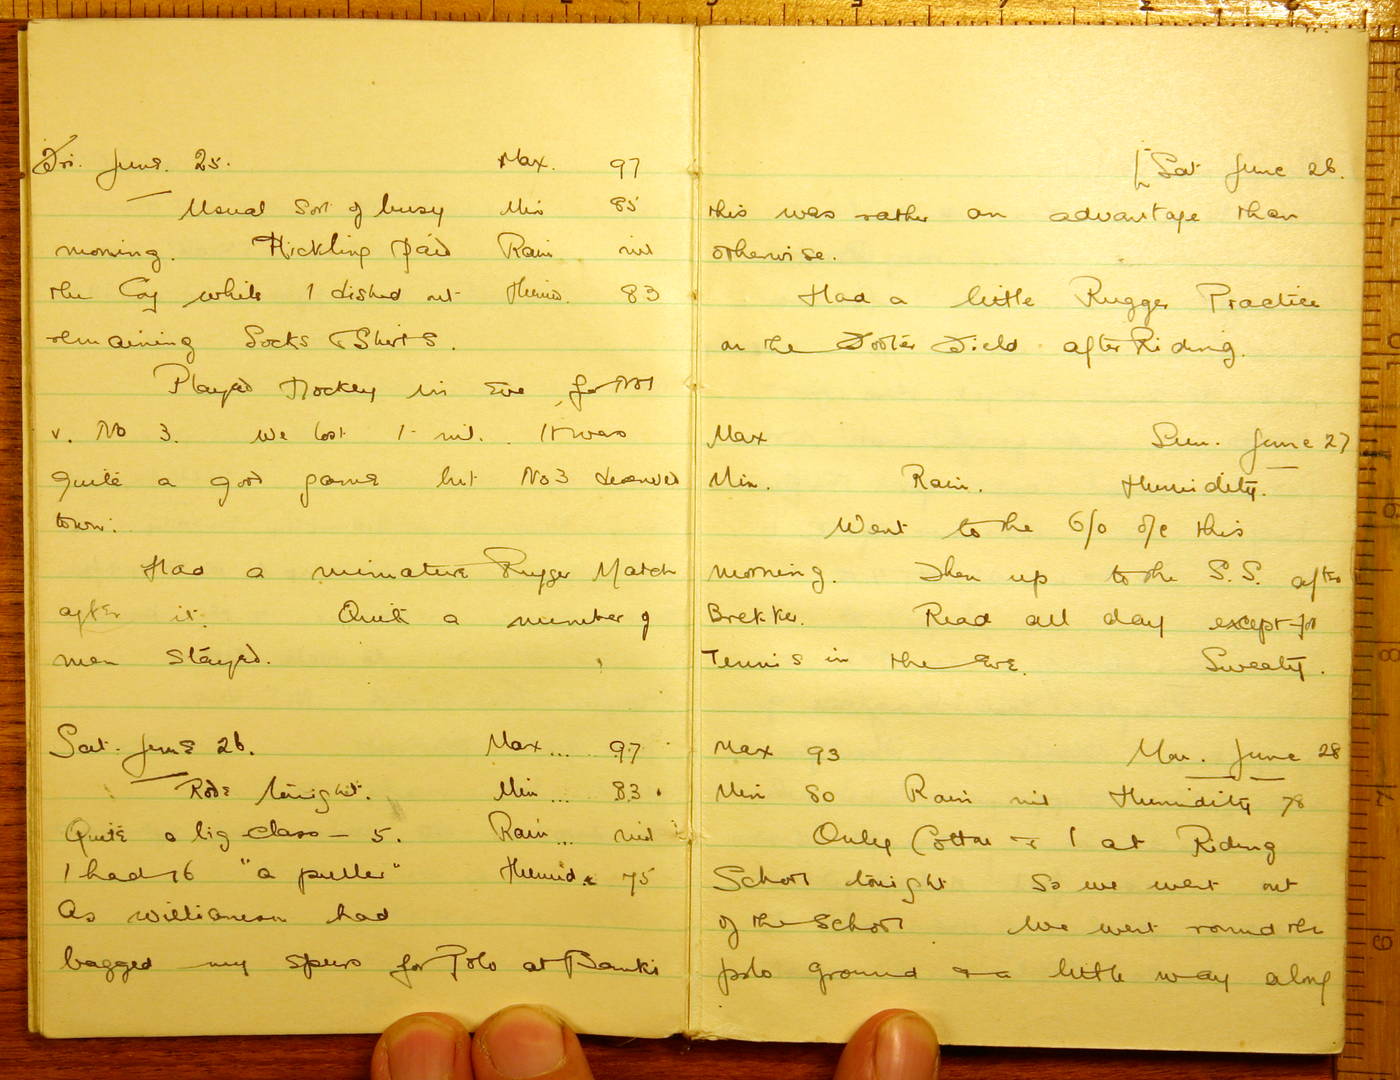 Fri. June. 25. Max. 97
Usual sort of busy Min 85
morning. Hickling paid Rain nil
the Coy while I dished out Humid. 83
remaining Socks & Shirts.
Played Hockey in Eve for No1
v. No 3. We lost 1-nil. It was
quite a good game but No3 deserved
to win.
Had a miniature Rugger Match
after it. Quite a number of
men stayed.
Sat. June 26. Max... 97.
Rode tonight. Min... 83.
Quite a big class – 5. Rain... nil
I had 16 "a puller" Humid. 75
As Williamson had
bagged my spurs for Polo at Banki
[Sat June 26.
this was rather an advantage than
otherwise.
Had a little Rugger Practice
on the Footer Field after Riding.
Max Sun. June 27
Min. Rain. Humidity.
Went to the G/o o/c this
morning. Then up to the S.S. after
Brekker. Read all day except for
Tennis in the Eve. Sweaty.
Max 93 Mon. June 28
Min 80 Rain nil Humidity 78
Only Cotton & I at Riding
School tonight So we went out
of the School We went round the
polo ground & a little way along